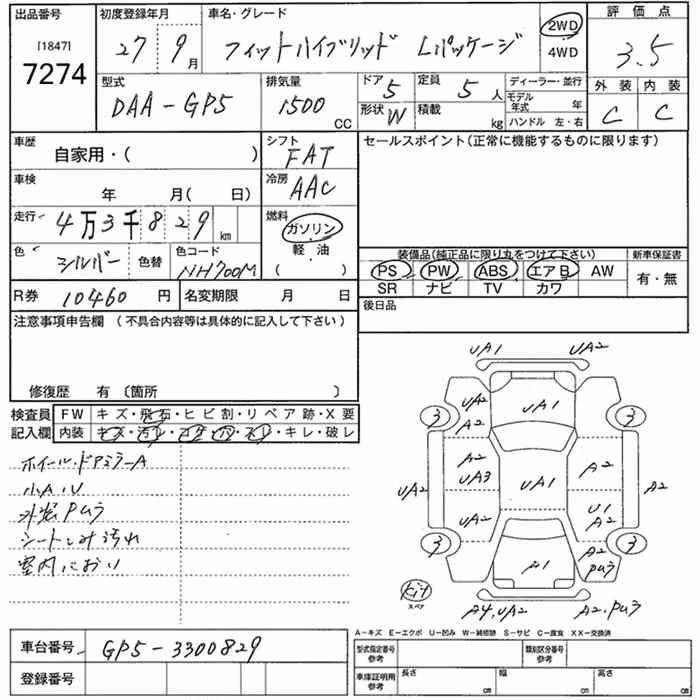 出品番号 初度登録年月 車名・グレード 評価点
[1847]
7274
27 9月 フィットハイブリッド Lパッケージ
2WD
4WD
3.5
型式 排気量 ドア 5 定員 5 人 ディーラー・並行 外装 内装
モデル年式 年
DAA-GP5 1500 CC 形状 W 積載 kg ハンドル 左・右 C C
車歴 自家用・( ) シフト FAT セールスポイント(正常に機能するものに限ります)
車検 年 月( 日) 冷房 AAC
走行 4万3千829 km 燃料 ガソリン
軽・油
( )
色 シルバー 色替 色コード NH700M
装備品(純正品に限り丸をつけて下さい) 新車保証書
PS PW ABS エアB AW 有・無
SR ナビ TV カワ
R券 10460 円 名変期限 月 日 後日品
注意事項申告欄 (不具合内容等は具体的に記入して下さい)
修復歴 有 〔箇所 〕
検査員 FW キズ・飛石・ヒビ割・リペア跡・X要
記入欄 内装 キズ・汚レ・コゲ・穴・スレ・キレ・破レ
ホイール・ドアミラーA
小A・U
外装Pムラ
シートしみ汚れ
室内におい
UA1 UA2
3 UA2 A2 UA1 3
A2 UA3 UA1 A2
UA2 UA2 U1 A2 A2
3 A1 A2 Pムラ 3
キット
スペア
A4,UA2 A2,Pムラ
A-キズ E-エクボ U-凹み W-補修跡 S-サビ C-腐食 XX-交換済
車台番号 GP5-3300829
型式指定番号 参考 類別区分番号 参考
登録番号
車庫証明用 参考 長さ cm 幅 cm 高さ cm